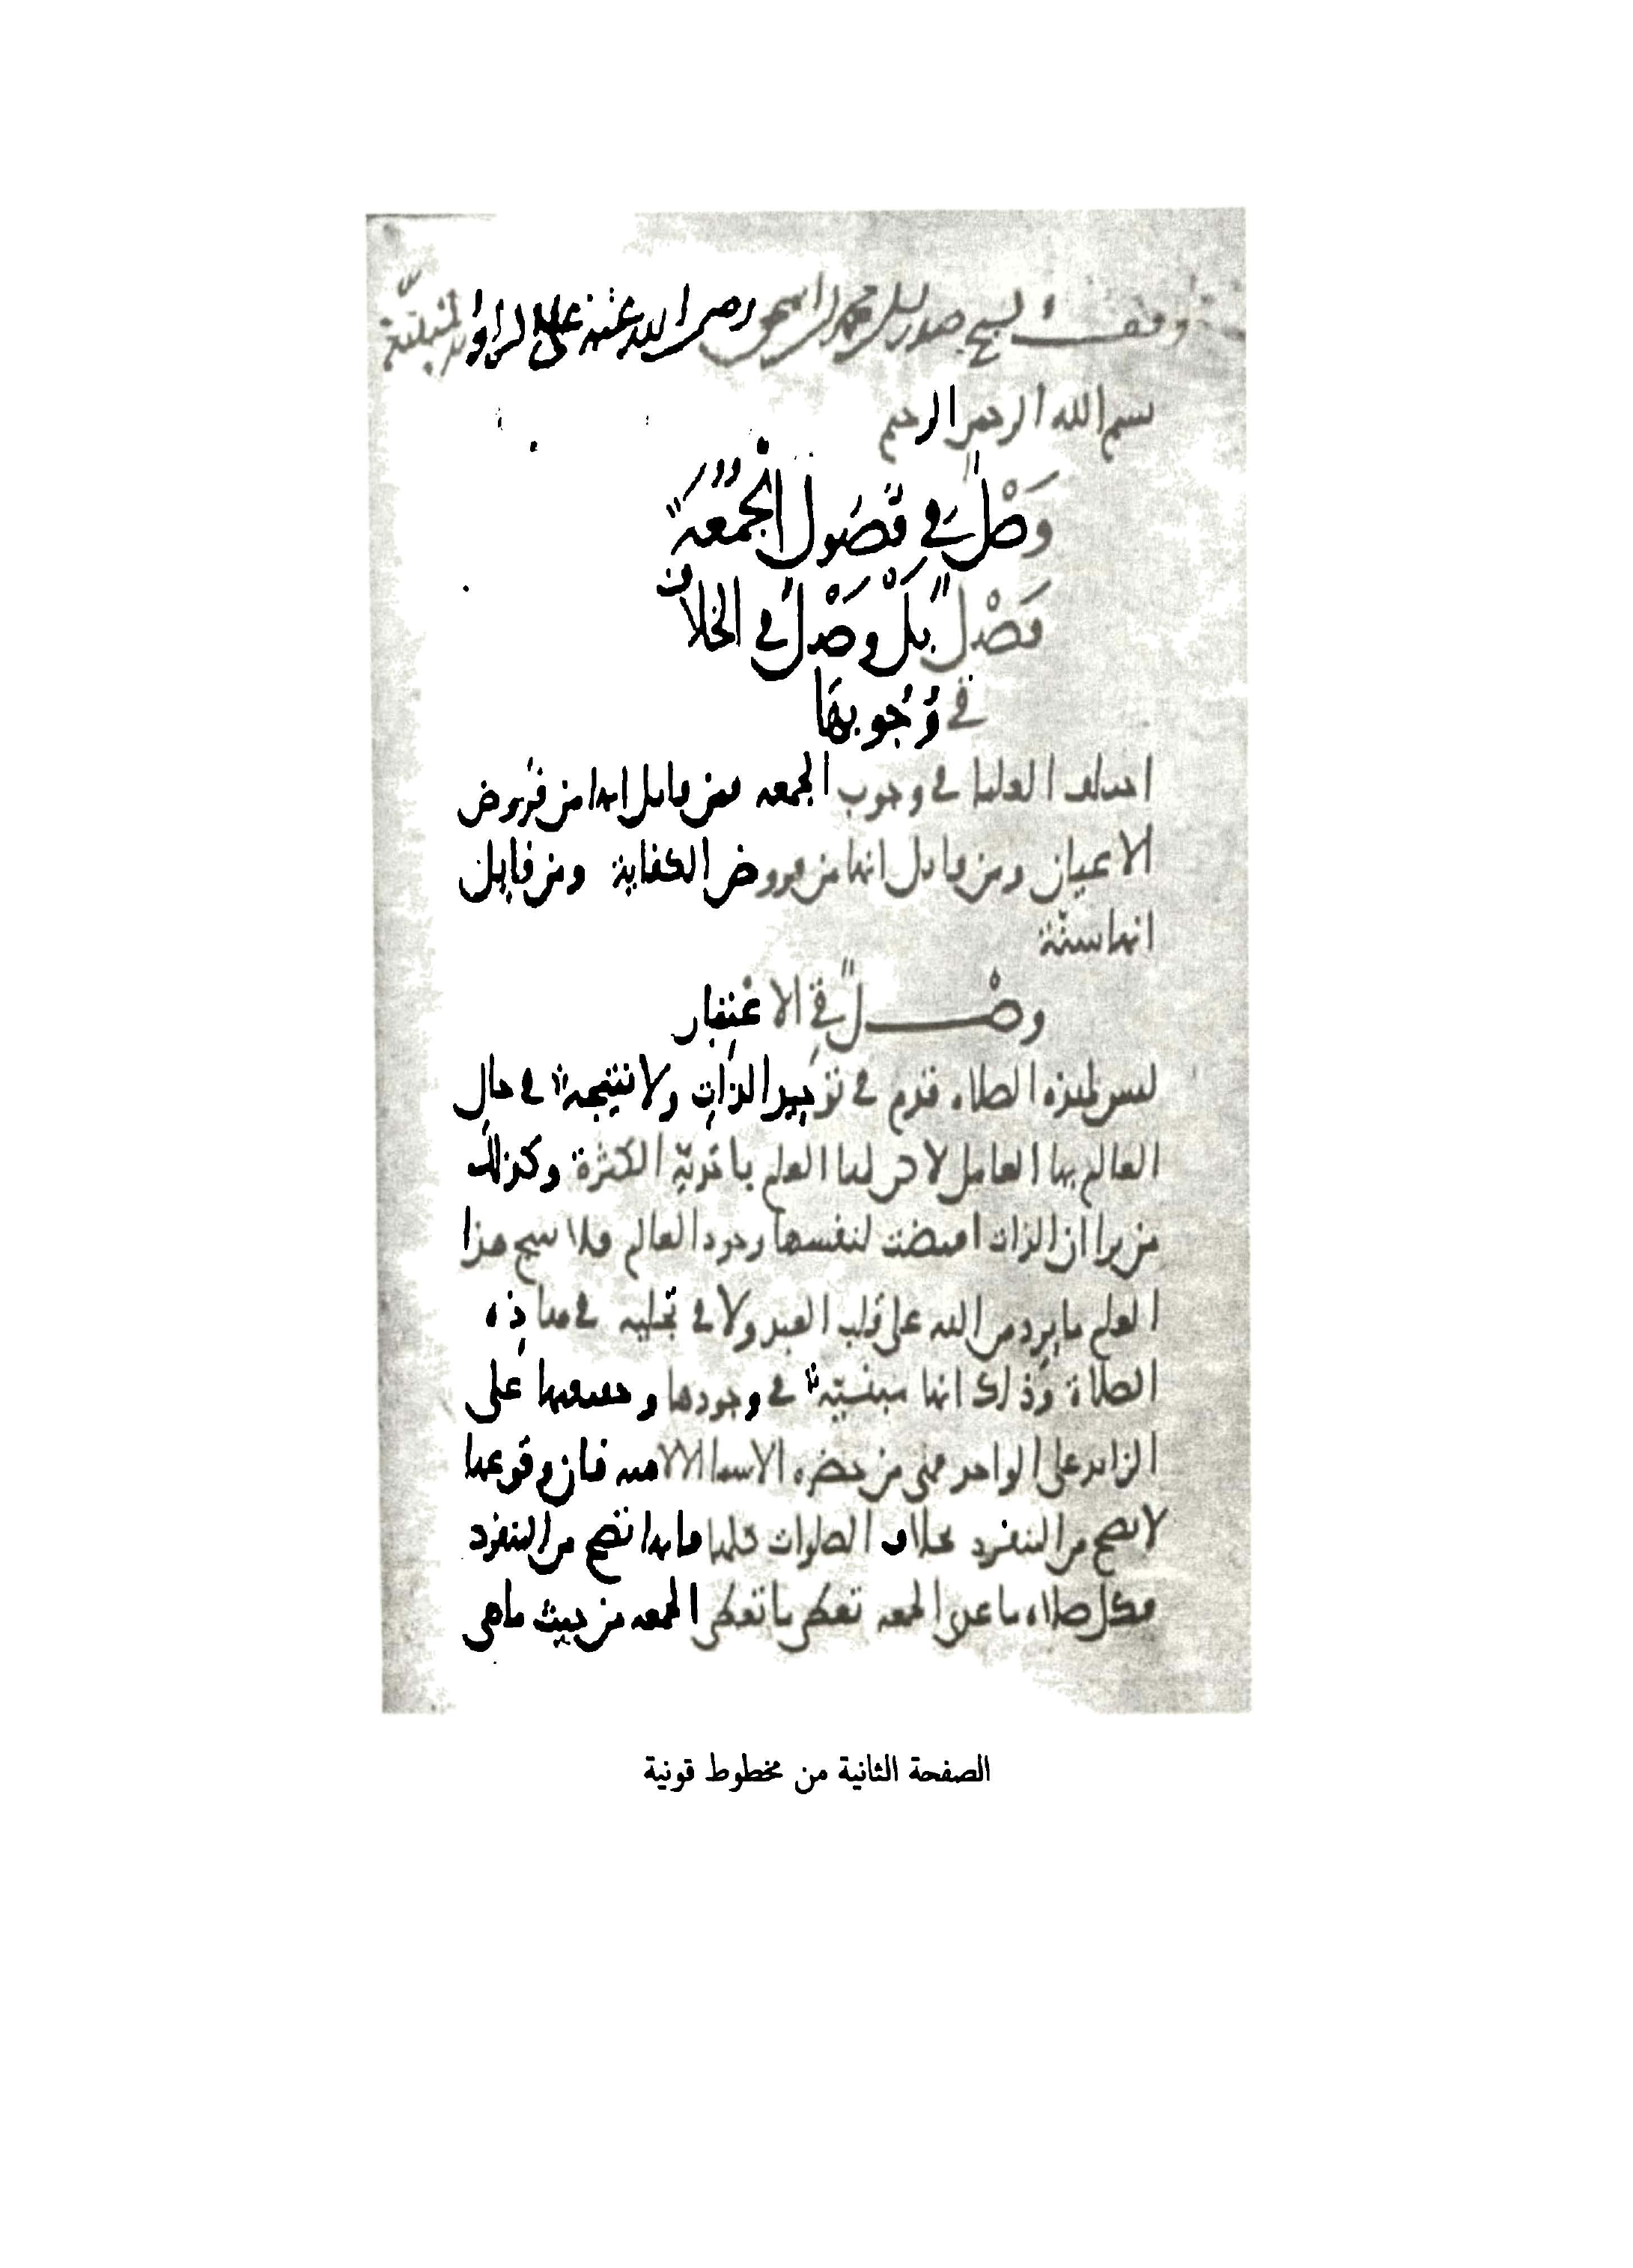 وقف الشيخ صدر الدين محمد بن اسحق رضى الله عنه على الزاوية
بسم الله الرحمن الرحيم
وَصْلٌ في فصُول الجُمُعَة
فَصْلٌ بَلْ وَصْلٌ في الخلاف
في وُجُوبهَا
اختلف العلما في وجوب الجمعه فمن قايل انها من فروض
الاعيان ومن قايل انها من فروض الكفاية ومن قايل
انها سنّة
وصْـــــلٌ في الاعْتِبار
ليس لهذه الصلاه قدم في توحيد الذات ولا نتيجة في حال
العالم بها العامل لاكن لها العلم باحَديّة الكثرة وكذلك
من يرا ان الذات اقتضت لنفسها وجود العالم فلا ينتج هذا
العلم ما يرد من الله على قلب العبد ولا في تجليه في هاذِه
الصلاة وذلك انها مبنيّة في وجودها وحقيقتها على
الزايد على الواحد فهي من حضره الاسما الالاهيه فان وقوعها
لا يصح من المنفرد بخلاف الصلوات كلها فانها تصح من المنفرد
فكل صلاه ما عدى الجمعه تعطى ما تعطى الجمعه من حيث ما هي
الصفحة الثانية من مخطوط قونية